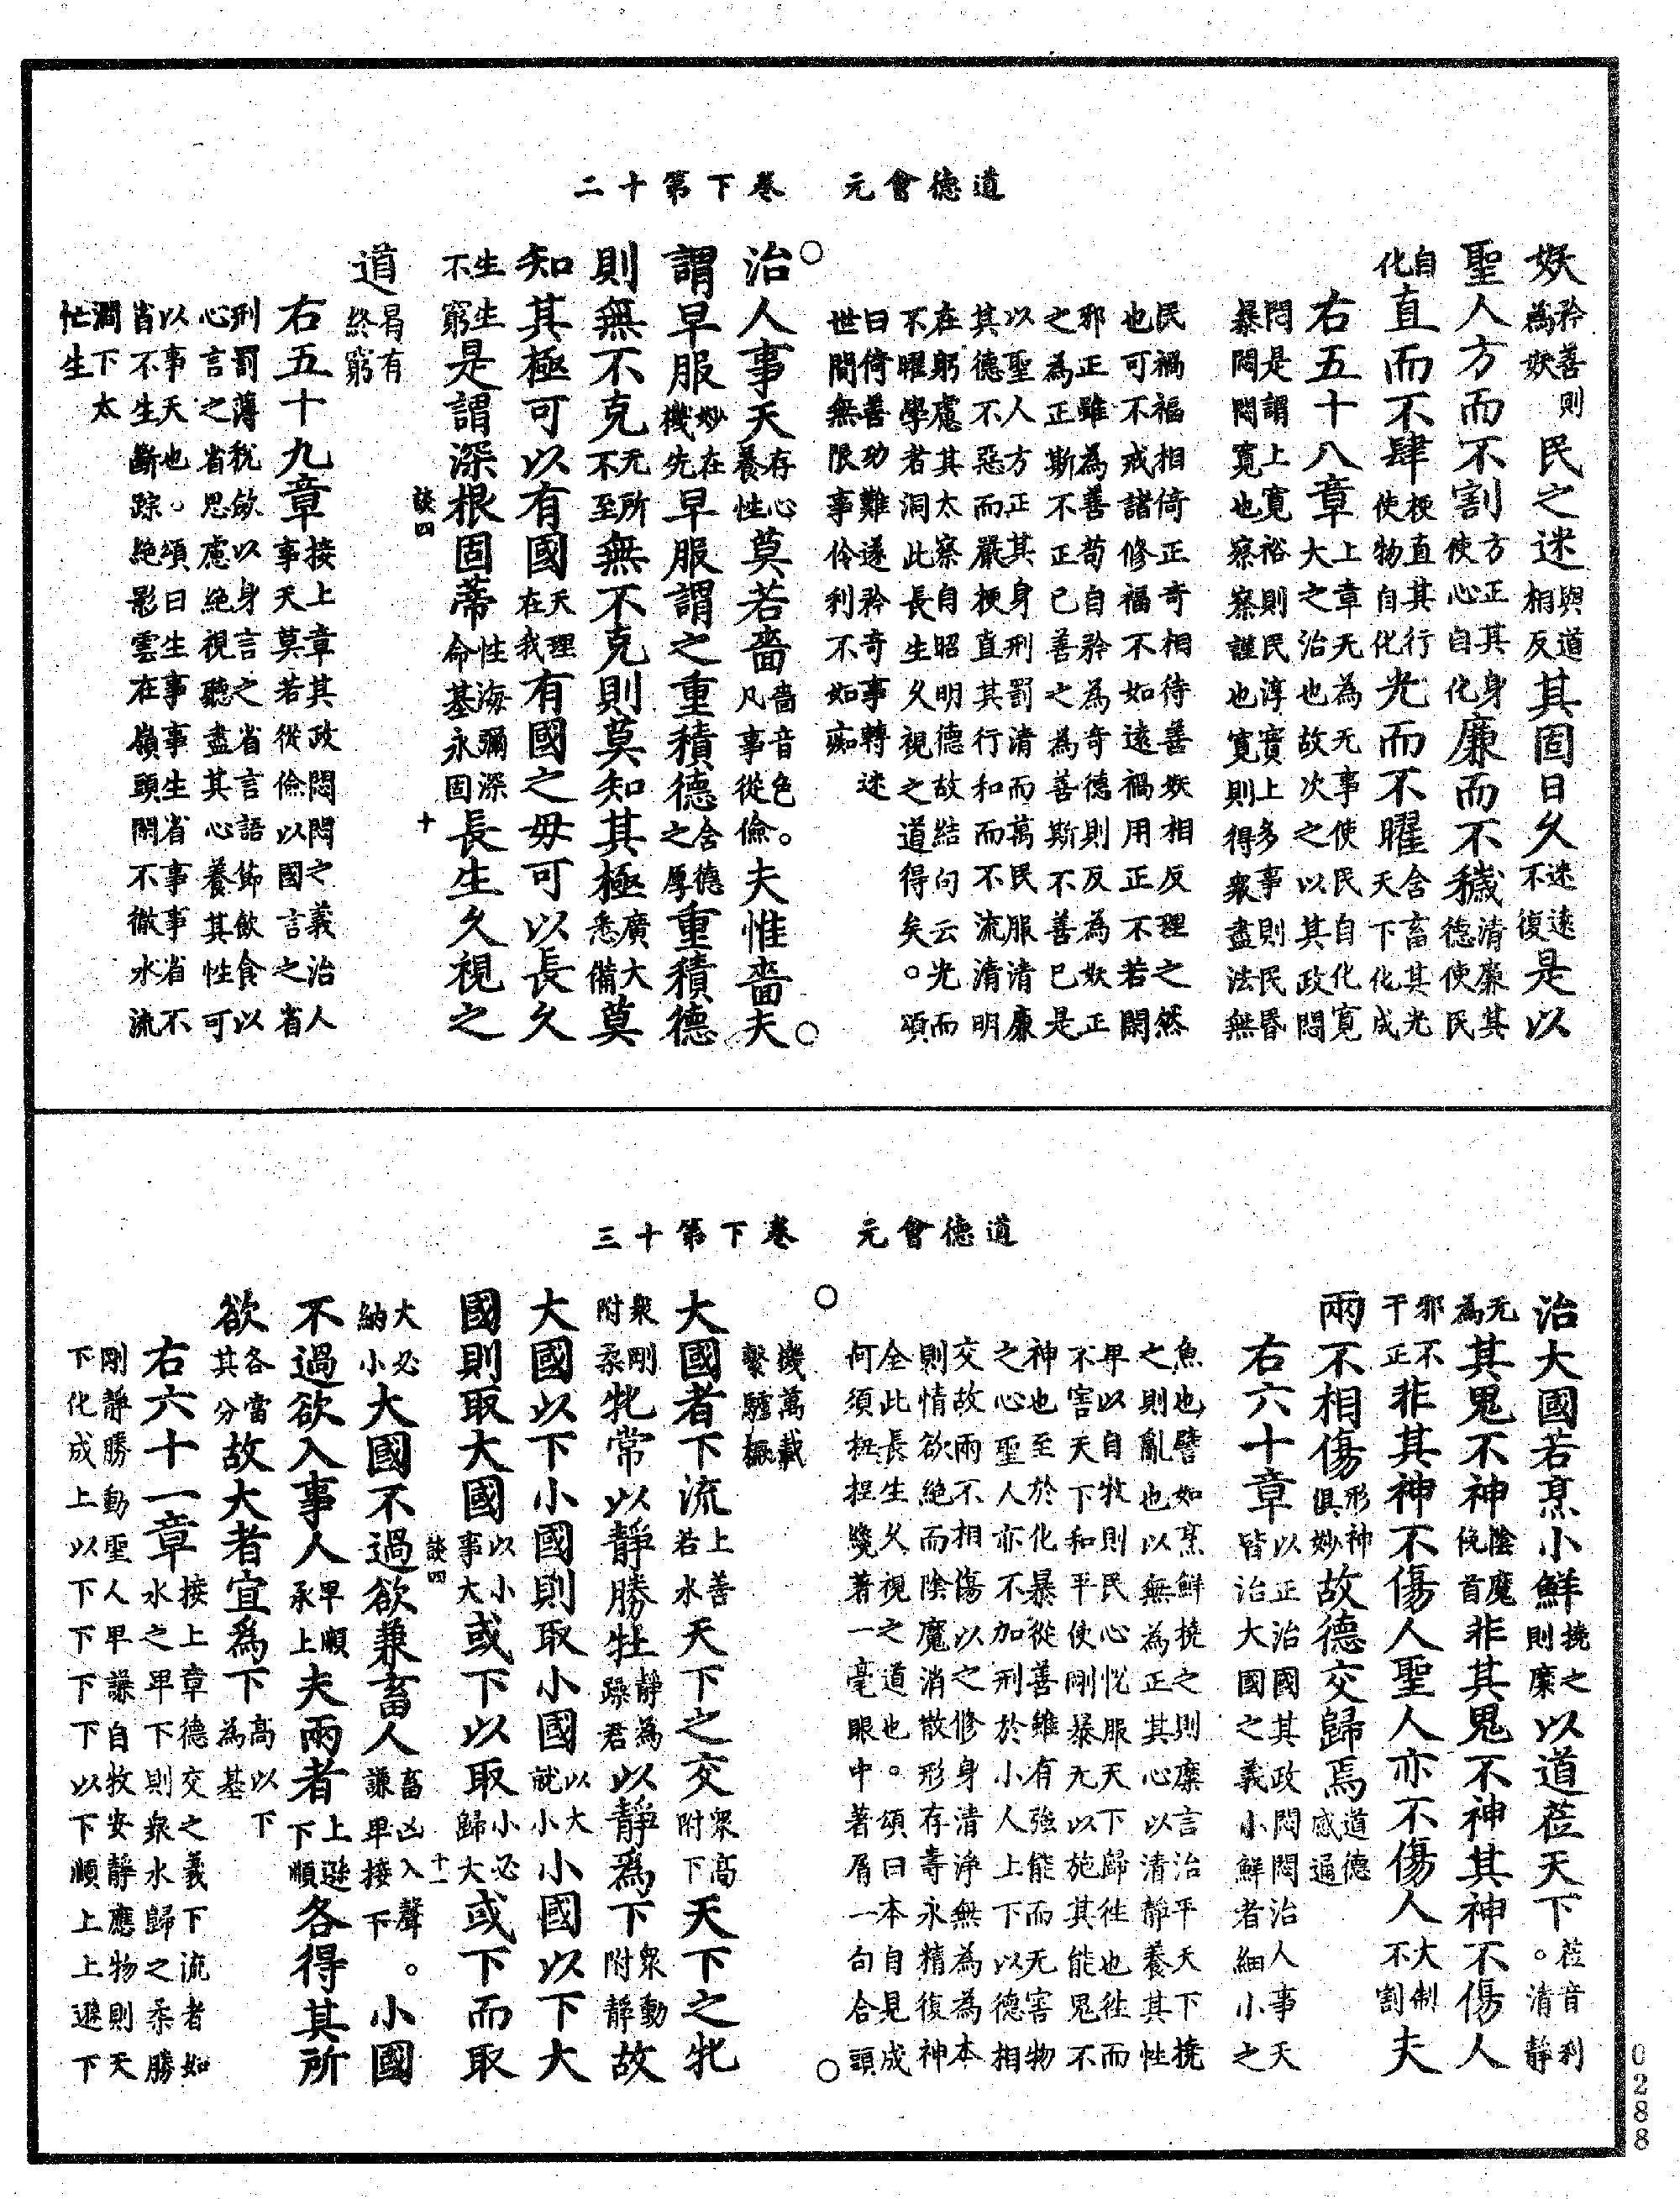 道德會元　卷下第十二
妖矜善則為妖民之迷與道相反其固日久迷遠不復是以
聖人方而不割方正其身使心自化廉而不穢清廉其德使民
自化直而不肆梗直其行使物自化光而不曜含畜其光天下化成
右五十八章上章无為无事使民自化寬大之之治也故次之以其政悶
悶是謂上寬裕則民淳實上多事則民昏暴悶悶寬也察察謹也寬則得衆盡法無
民禍福相倚正奇相待善妖相反理之然也可不戒諸修福不如遠禍用正不若閑
邪正雖為善苟自矜為奇德則反為妖正之為正斯不正已善之為善斯不善已是
以聖人方正其身刑罰清而萬民服清廉其德不惡而嚴梗直其行和而不流清明
在躬處其太察自昭明德故結句云光而不曜學者洞此長生久視之道得矣。頌
曰倚善功難遂矜奇事轉迷世間無限事伶利不如痴
○治人事天存心養性莫若嗇嗇音色。凡事從儉夫惟嗇夫○
謂早服妙在機先早服謂之重積德含德之厚重積德
則無不克无所不至無不克則莫知其極廣大悉備莫
知其極可以有國天理在我有國之毋可以長久
生生不窮是謂深根固蒂性海彌深命基永固長生久視之
談四　十
道曷有終窮
右五十九章接上章其政悶悶之義治人事天莫若從儉以國言之省
刑罰薄稅歛以身言之省言語節飲食以心言之省思慮絕視聽盡其心養其性可
以事天也。頌曰生事事生省事事省不省不生斷踪絕影雲在嶺頭閑不徹水流
澗下太忙生
道德會元　卷下第十三
治大國若烹小鮮撓之則糜以道莅天下。莅音利清靜
无為其鬼不神陰魔俛首非其鬼不神其神不傷人
邪不干正非其神不傷人聖人亦不傷人大制不割夫
兩不相傷形神俱妙故德交歸焉道德感通
右六十章以正治國其政悶悶治人事天皆治大國之義小鮮者細小之
魚也譬如烹鮮撓之則糜言治平天下撓之則亂也以無為正其心以清靜養其性
卑以自牧則民心悅服天下歸往也往而不害天下和平使剛暴无以施其能鬼不
神也至於化暴從善維有強能而无害物之心聖人亦不加刑於小人上下以德相
交故兩不相傷以之修身清淨無為為本則情欲絕而陰魔消散形存壽永精復神
全此長生久視之道也。頌曰本自見成何須扭捏幾著一毫眼中著屑一句合頭
機萬載繫驢橛
○大國者下流上善若水天下之交衆高附下天下之牝○
衆剛附柔牝常以靜勝牡靜為躁君以靜爲下衆動附靜故
大國以下小國則取小國以大就小小國以下大
國則取大國以小事大或下以取小必歸大或下而取
談四　十一
大必納小大國不過欲兼畜人畜凶入聲。謙卑接下小國
不過欲入事人卑順承上夫兩者上遜下順各得其所
欲各當其分故大者宜爲下高以下為基
右六十一章接上章德交之義下流者如水之卑下則衆水歸之柔勝
剛靜勝動聖人卑謙自牧安靜應物則天下化成上以下下下下以下順上上遜下
0288